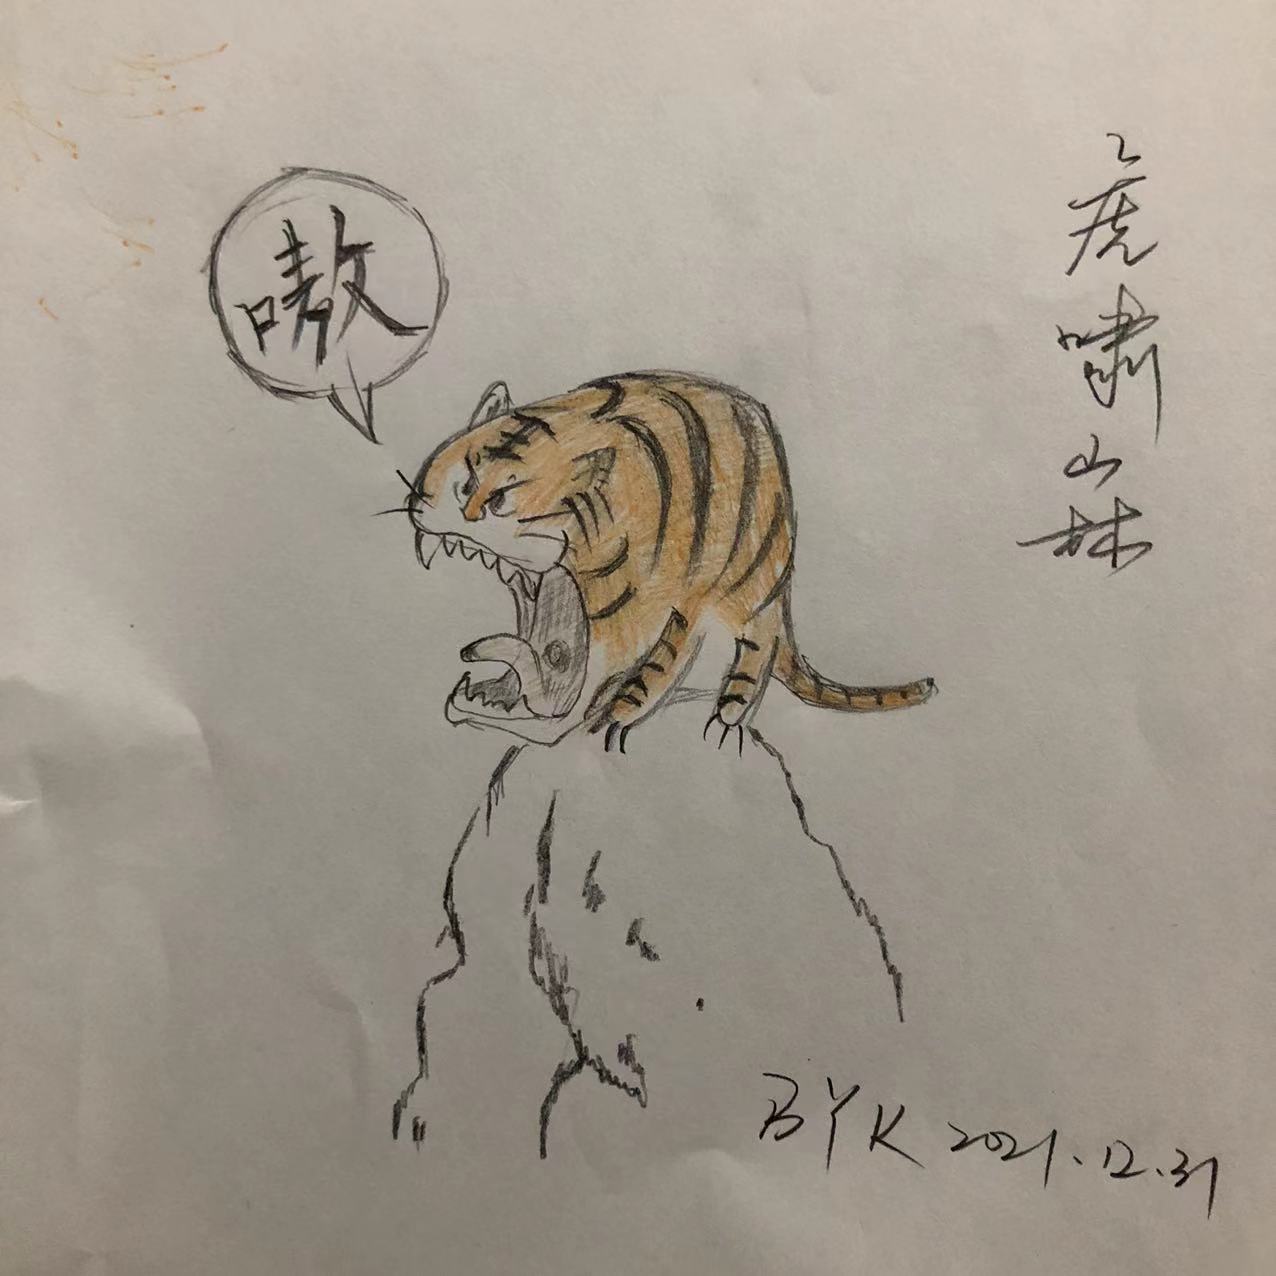 嗷
虎啸山林
BYK 2021.12.31